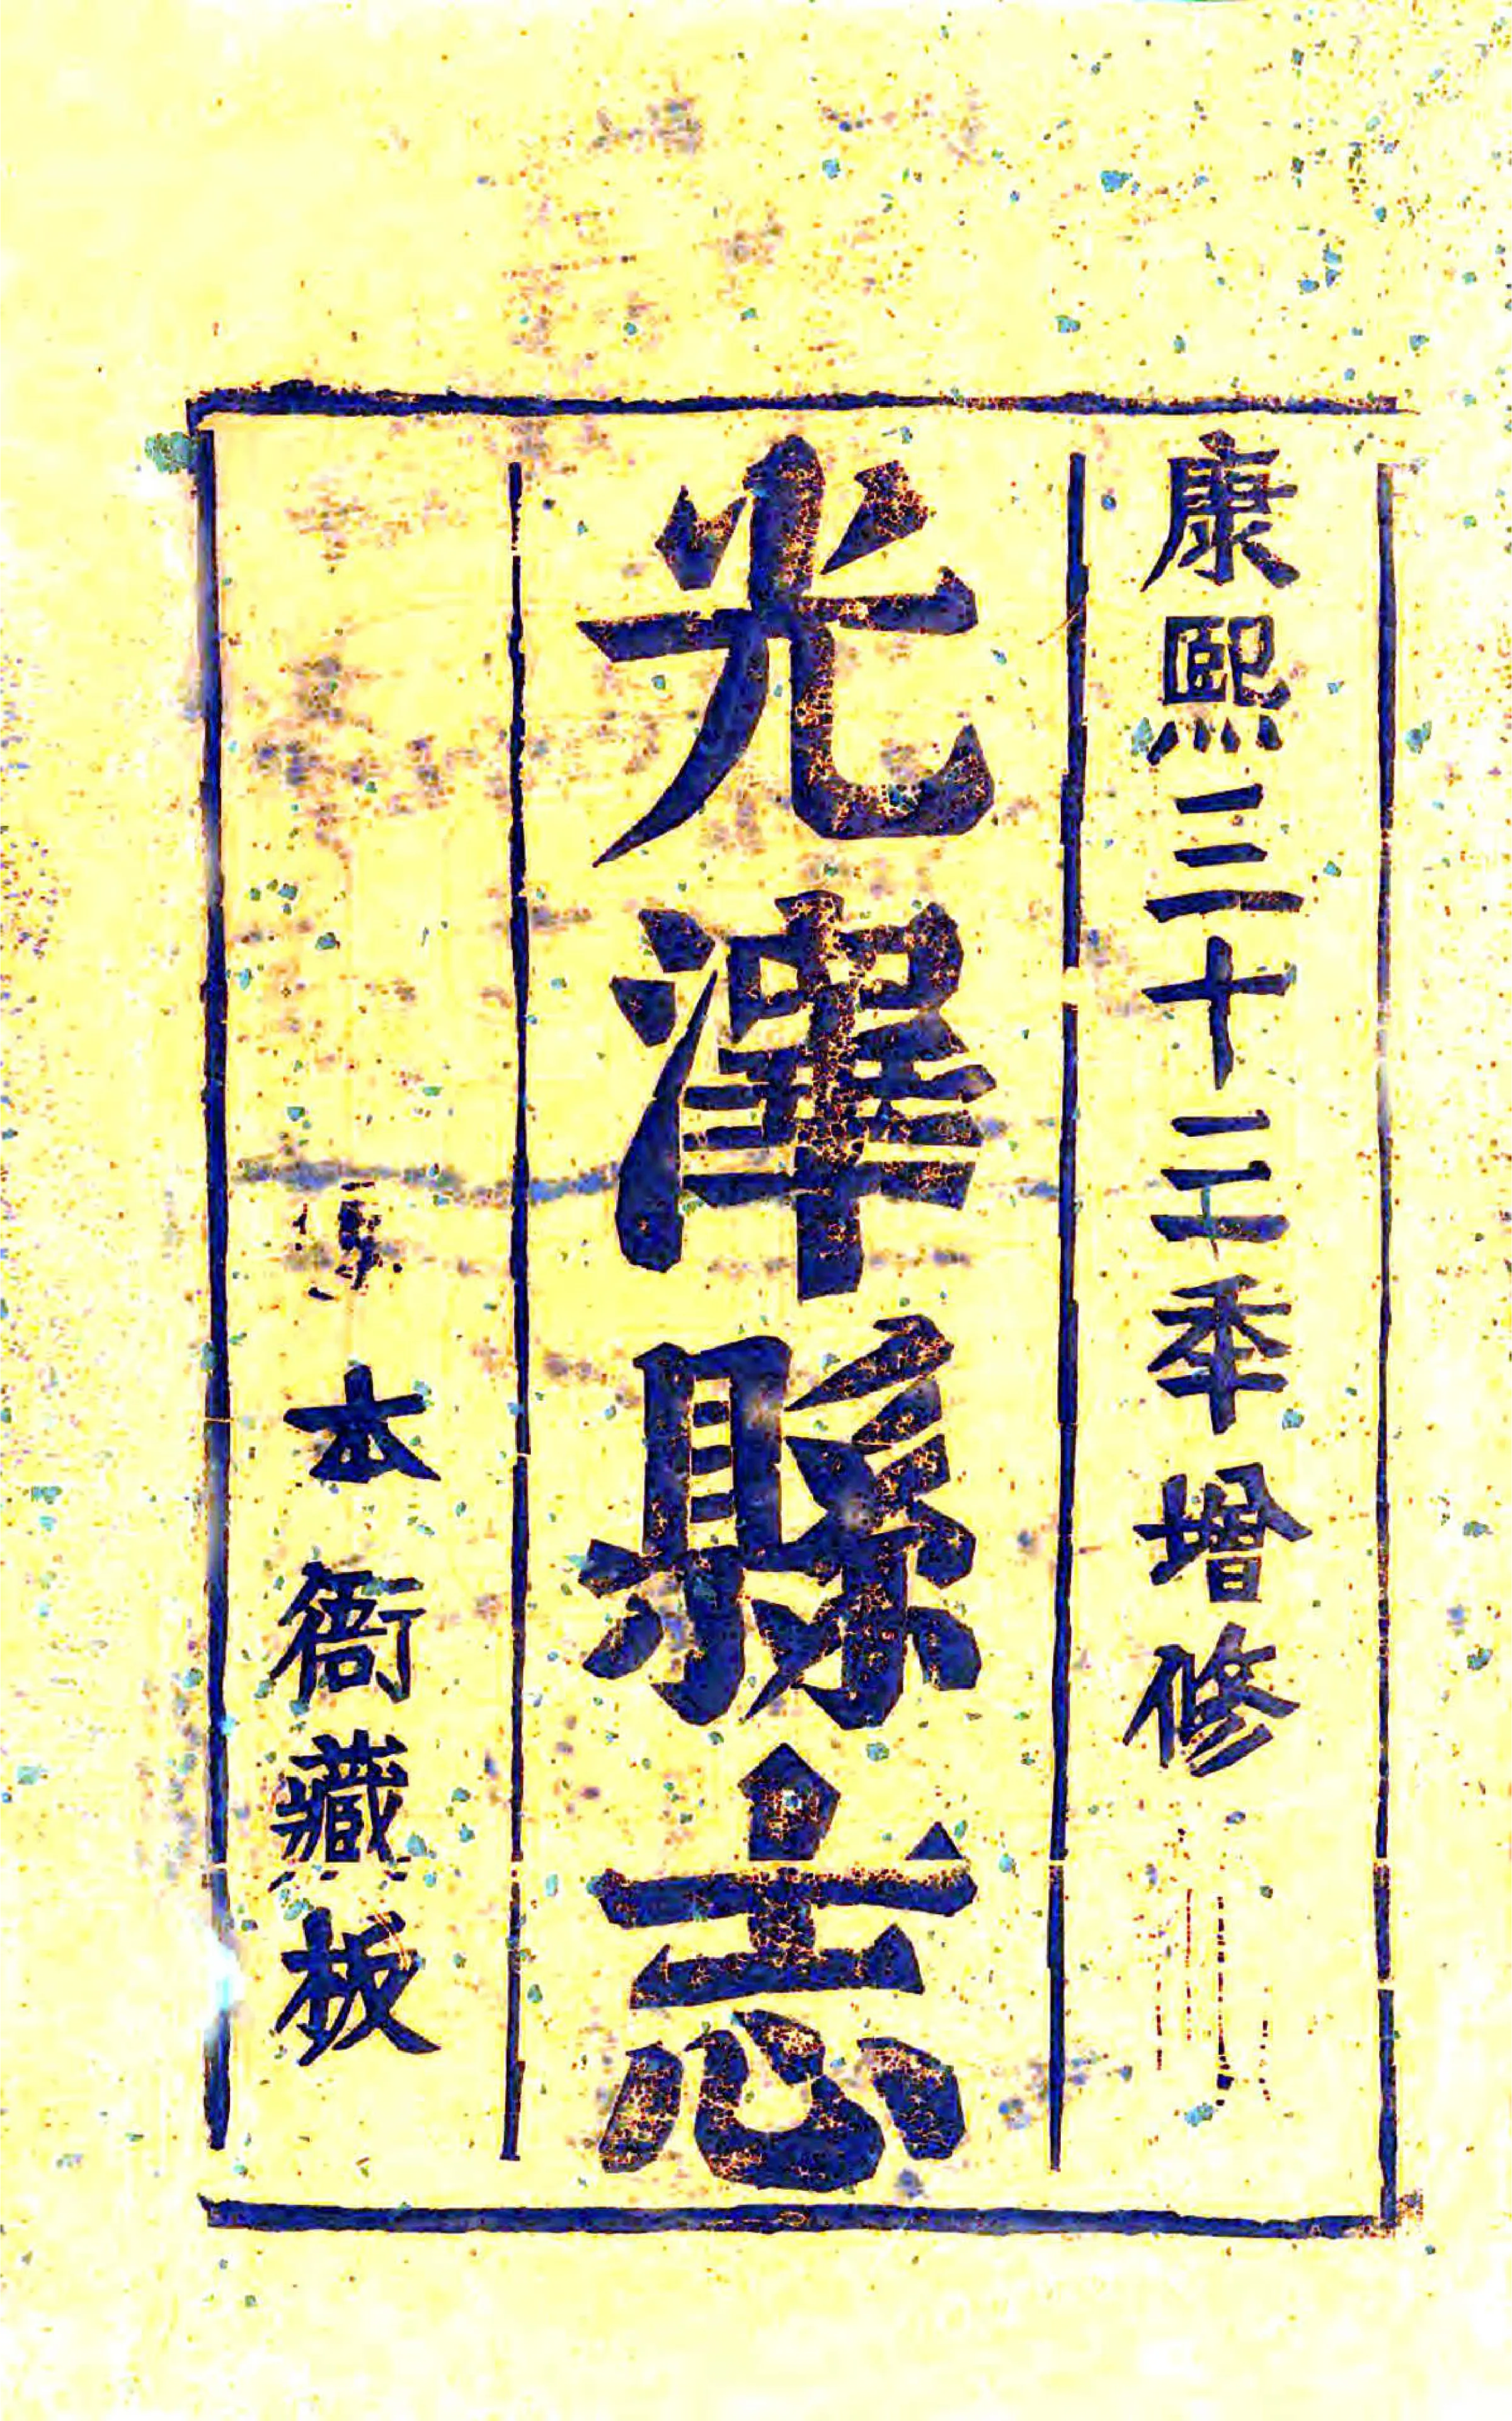 康熙三十二季增修
光澤縣志
本衙藏板